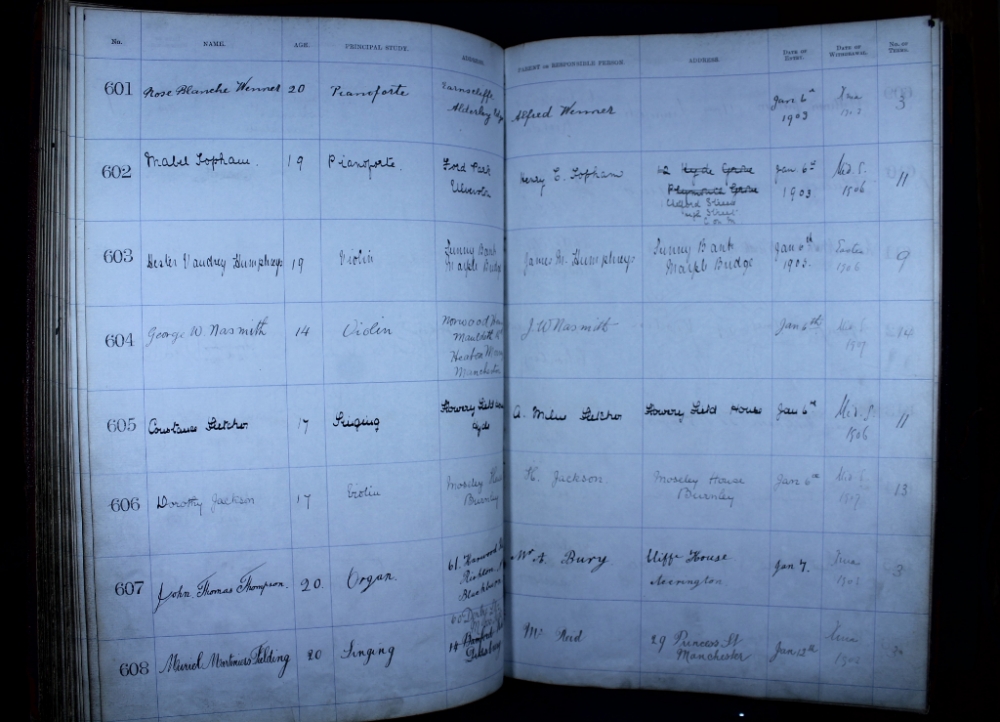 No. NAME. AGE. PRINCIPAL STUDY. ADDRESS. PARENT OR RESPONSIBLE PERSON. ADDRESS. DATE OF ENTRY. DATE OF WITHDRAWAL. NO. OF TERMS.
601 Rose Blanche Wenner 20 Pianoforte Earnscliffe Alfred Wenner Jan 6th Xmas 3
Alderley 1903
602 Mabel Topham. 19 Pianoforte. Ford Park Henry E. Topham 42 Hyde Grove Jan 6th Mid. S. 11
Ulverston Plymouth Grove 1903 1906
603 Hester Vaudrey Humphreys 19 Violin Sunny Bank James M. Humphreys Sunny Bank Jan 6th Easter 9
Marple Bridge Marple Bridge 1903. 1906
604 George W. Nasmith 14 Violin Norwood J. W Nasmith Jan 6th Mid. S. 14
Mauldeth 1907
Heaton
Manchester
605 Constance Fletcher 17 Singing Flowery Field A. Milne Fletcher Flowery Field House Jan 6th Mid. S. 11
Hyde 1906
606 Dorothy Jackson 17 Violin Moseley House H. Jackson. Moseley House Jan 6th Mid S 13
Burnley Burnley 1907
607 John Thomas Thompson. 20. Organ. 61. Harwood Mr A. Bury Cliffe House Jan 7. Xmas 3
Rishton Accrington
Blackburn
608 Muriel Mortimers Fielding 20 Singing Mr Reid 29 Princess St Jan 12th Xmas
Manchester